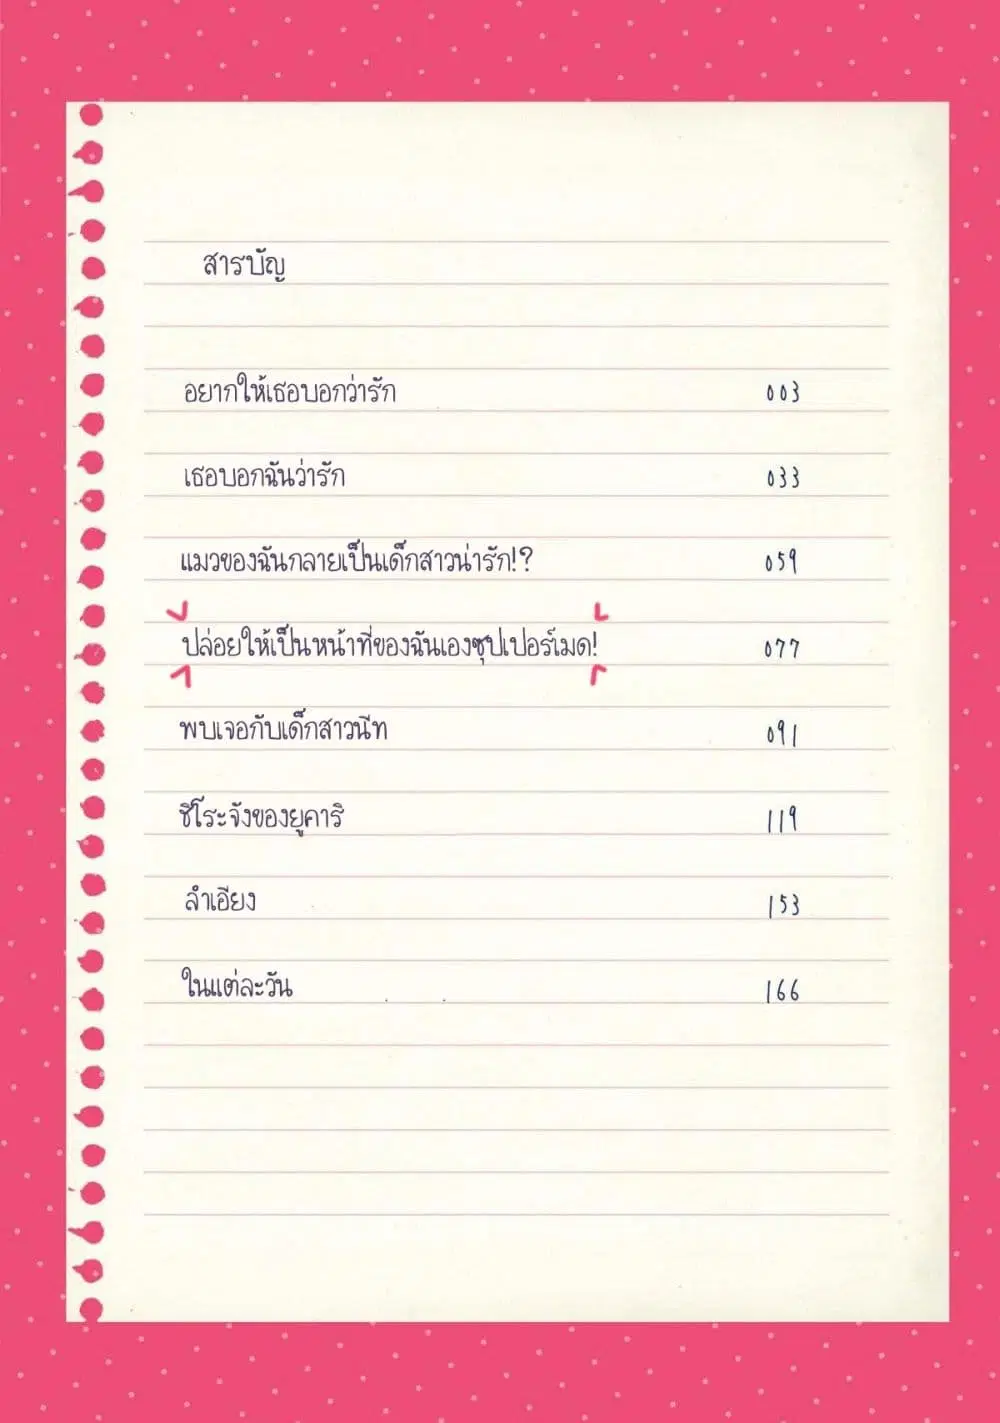 สารบัญ
อยากให้เธอบอกว่ารัก 003
เธอบอกฉันว่ารัก 033
แมวของฉันกลายเป็นเด็กสาวน่ารัก!? 059
ปล่อยให้เป็นหน้าที่ของฉันเองซุปเปอร์เมด! 077
พบเจอกับเด็กสาวนีท 091
ชิโระจังของยูคาริ 119
ลำเอียง 153
ในแต่ละวัน 166